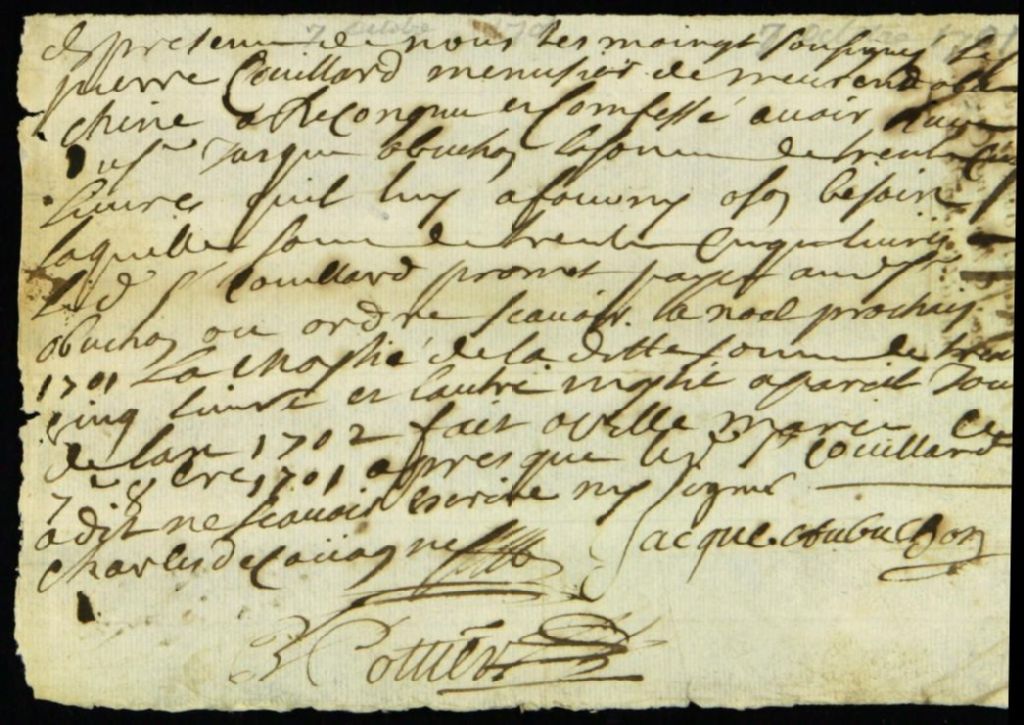 7 octobre 1701 7 octobre 1701
En presence de nous tesmoingt sousignes
pierre Couillard menusier demeurend a la
chine a Reconnu et Comfessé auoir
du sr Jacque obuchon la somme de trente
liuures quil luy a fourny a son besoin
laquelle somme de trente Cinq liures
Led sr Couillard promet payer aud sr
obuchon ou ordre scauoir la noel prochin
1701 La moytié de la ditte somme de tren
cinq liuure et l'autre moytié a pareil Jour
de lan 1702 fait a ville marie ce
7e 8bre 1701 apres que led sr Couillard
a dit ne scauoir Escrire ny signer
Charles de Coüagne Jacque Aubuchon
Pottier